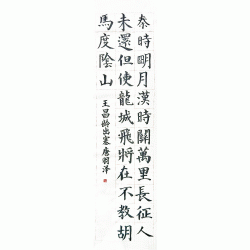 秦時明月漢時關萬里長征人
未還但使龍城飛將在不教胡
馬度陰山
王昌龄出塞唐羽洋